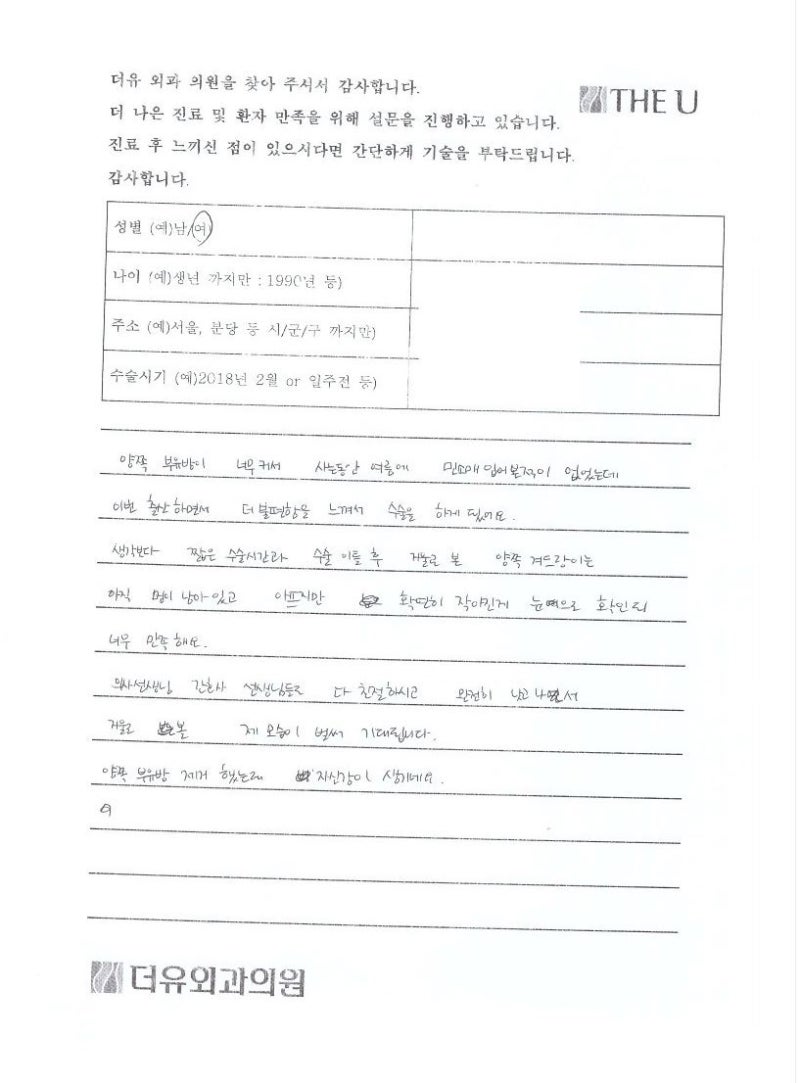 더유 외과 의원을 찾아 주셔서 감사합니다.
THE U
더 나은 진료 및 환자 만족을 위해 설문을 진행하고 있습니다.
진료 후 느끼신 점이 있으시다면 간단하게 기술을 부탁드립니다.
감사합니다.
성별 (예)남/여)
나이 (예)생년 까지만 : 1990년 등)
주소 (예)서울, 분당 등 시/군/구 까지만)
수술시기 (예)2018년 2월 or 일주전 등)
양쪽 부유방이 너무 커서 사는동안 여름에 민소매 입어본적이 없었는데
이번 출산하면서 더 불편함을 느껴서 수술을 하게 됬어요.
생각보다 짧은 수술시간과 수술 이틀 후 거울로 본 양쪽 겨드랑이는
아직 멍이 남아있고 아프지만 확연히 작아진게 눈으로 확인되
너무 만족해요.
의사선생님 간호사 선생님들도 다 친절하시고 완전히 낫고 나면서
거울로 본 제 모습이 벌써 기대됩니다.
양쪽 부유방 제거 했는데 자신감이 생기네요.
더유외과의원